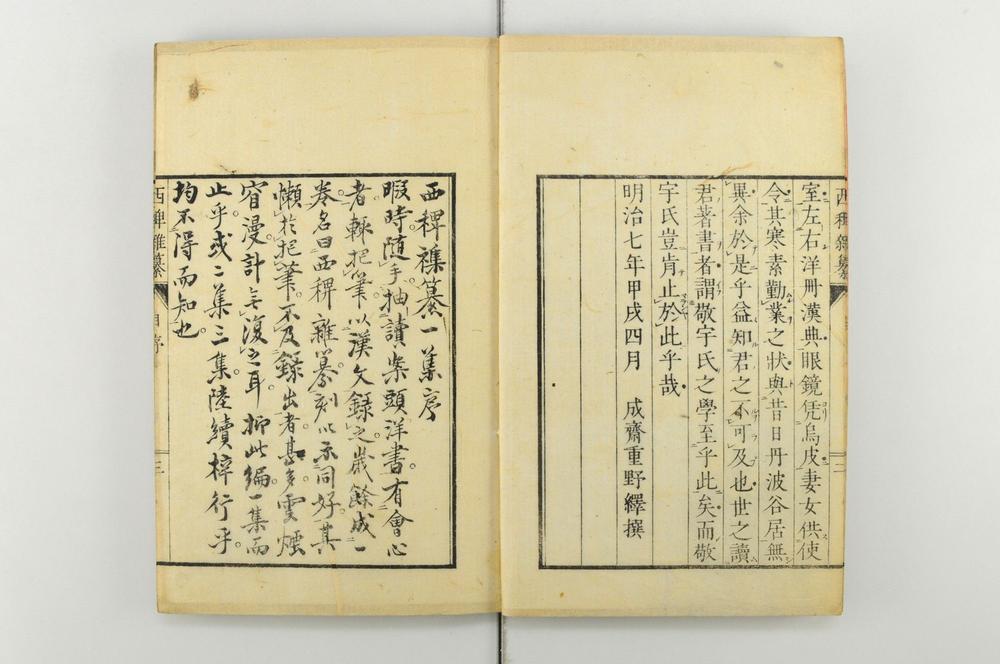 室左右洋册漢典眼鏡凭烏皮妻女供使
令其寒素勤業之狀與昔日丹波谷居無
異余於是乎益知君之不可及也世之讀
君著書者謂敬宇氏之學至乎此矣而敬
宇氏豈肯止於此乎哉
明治七年甲戌四月　成齋重野繹撰
西稗雜纂
二
西稗襍纂一集序
暇時隨手抽讀案頭洋書有會心
者輙把筆以漢文錄之歲餘成一
卷名曰西稗雜纂刻以示同好其
懶於把筆不及錄出者甚多雲煙
窅漫計無復之耳抑此編一集而
止乎或二集三集陸續梓行乎
均不得而知也
西稗雜纂
自序
三